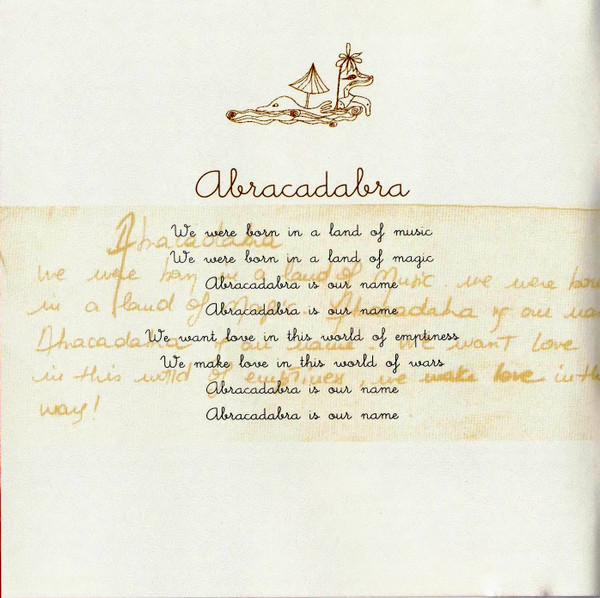 Abracadabra
We were born in a land of music
We were born in a land of magic
Abracadabra is our name
Abracadabra is our name
We want love in this world of emptiness
We make love in this world of wars
Abracadabra is our name
Abracadabra is our name
Abracadabra
we were born in a land of Music. we were born
in a land of Magic. Abracadabra is our name
Abracadabra is our name. we want love
in this world of emptiness, we make love in this
way!